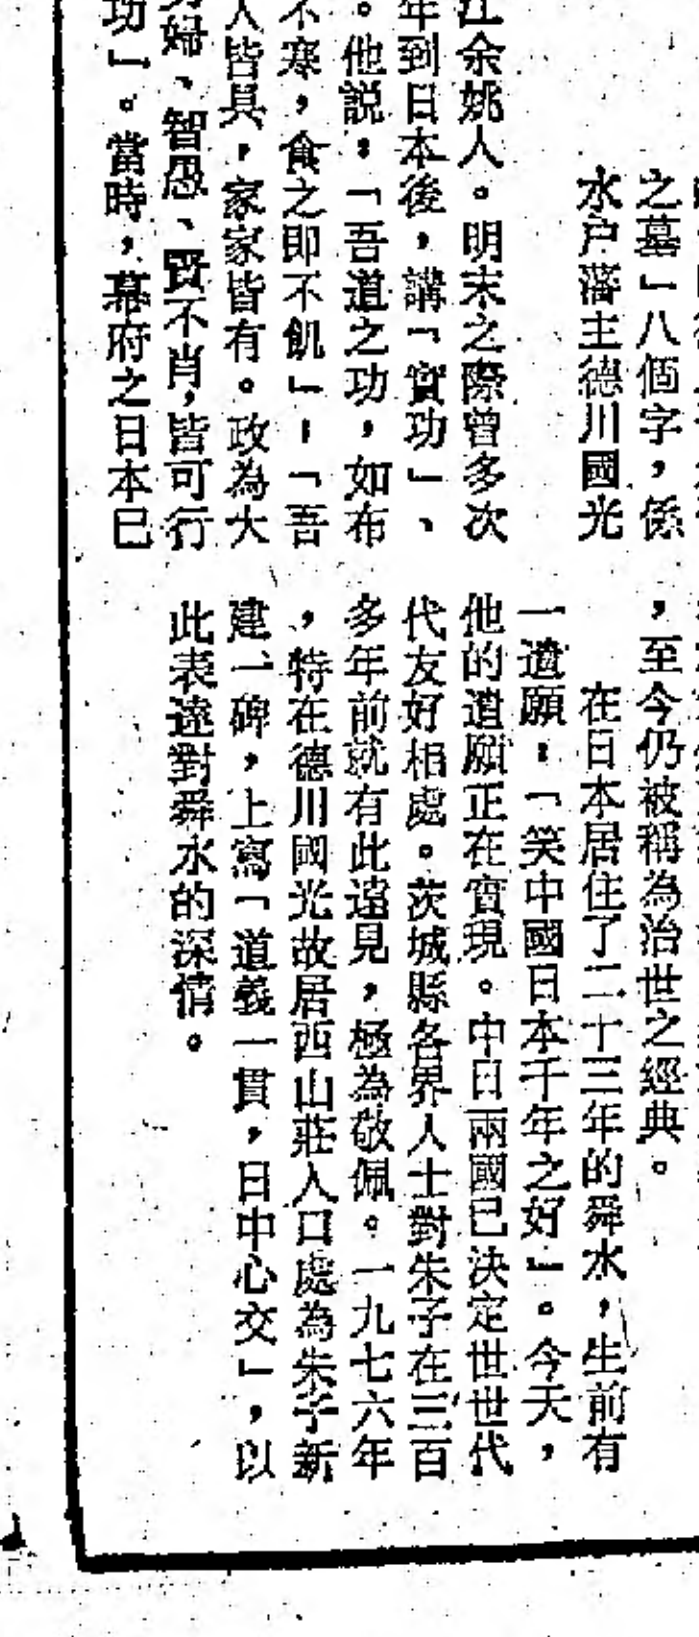 之墓」八個字，係
水户藩主德川國光
江余姚人。明末之際曾多次
年到日本後，講「實功」、
。他説：「吾道之功，如布
不寒，食之即不飢」；「吾
人皆具，家家皆有。政為大
婦、智愚、賢不肖，皆可行
功」。當時，幕府之日本已
，至今仍被稱為治世之經典。
在日本居住了二十三年的舜水，生前有
一遺願：「笑中國日本千年之好」。今天，
他的遺願正在實現。中日兩國已決定世世代
代友好相處。茨城縣各界人士對朱子在三百
多年前就有此遠見，極為敬佩。一九七六年
，特在德川國光故居西山莊入口處為朱子新
建一碑，上寫「道義一貫，日中心交」，以
此表達對舜水的深情。